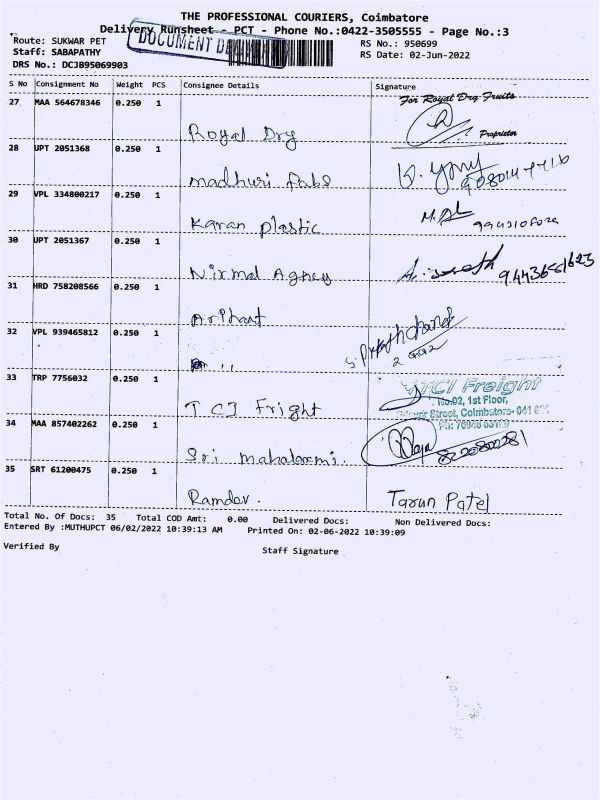 THE PROFESSIONAL COURIERS, Coimbatore
Delivery Runsheet - PCT - Phone No.:0422-3505555 - Page No.:3
Route: SUKWAR PET
RS No.: 950699
Staff: SABAPATHY
RS Date: 02-Jun-2022
DRS No.: DCJB95069903
DOCUMENT
S No Consignment No Weight PCS Consignee Details Signature
27 MAA 564678346 0.250 1
For Royal Dry Fruits
Proprietor
Royal Dry
28 UPT 2051368 0.250 1
madhuri fabs
29 VPL 334800217 0.250 1
Karan plastic
30 UPT 2051367 0.250 1
Nirmal Agncy
31 HRD 758208566 0.250 1
Arihant
32 VPL 939465812 0.250 1
,,
33 TRP 7756032 0.250 1
TCI Freight
No:02, 1st Floor,
Street, Coimbatore- 641
T CI Fright
34 MAA 857402262 0.250 1
Sri mahalaxmi.
35 SRT 61200475 0.250 1
Ramdev. Tarun Patel
Total No. Of Docs: 35 Total COD Amt: 0.00 Delivered Docs: Non Delivered Docs:
Entered By :MUTHUPCT 06/02/2022 10:39:13 AM Printed On: 02-06-2022 10:39:09
Verified By Staff Signature